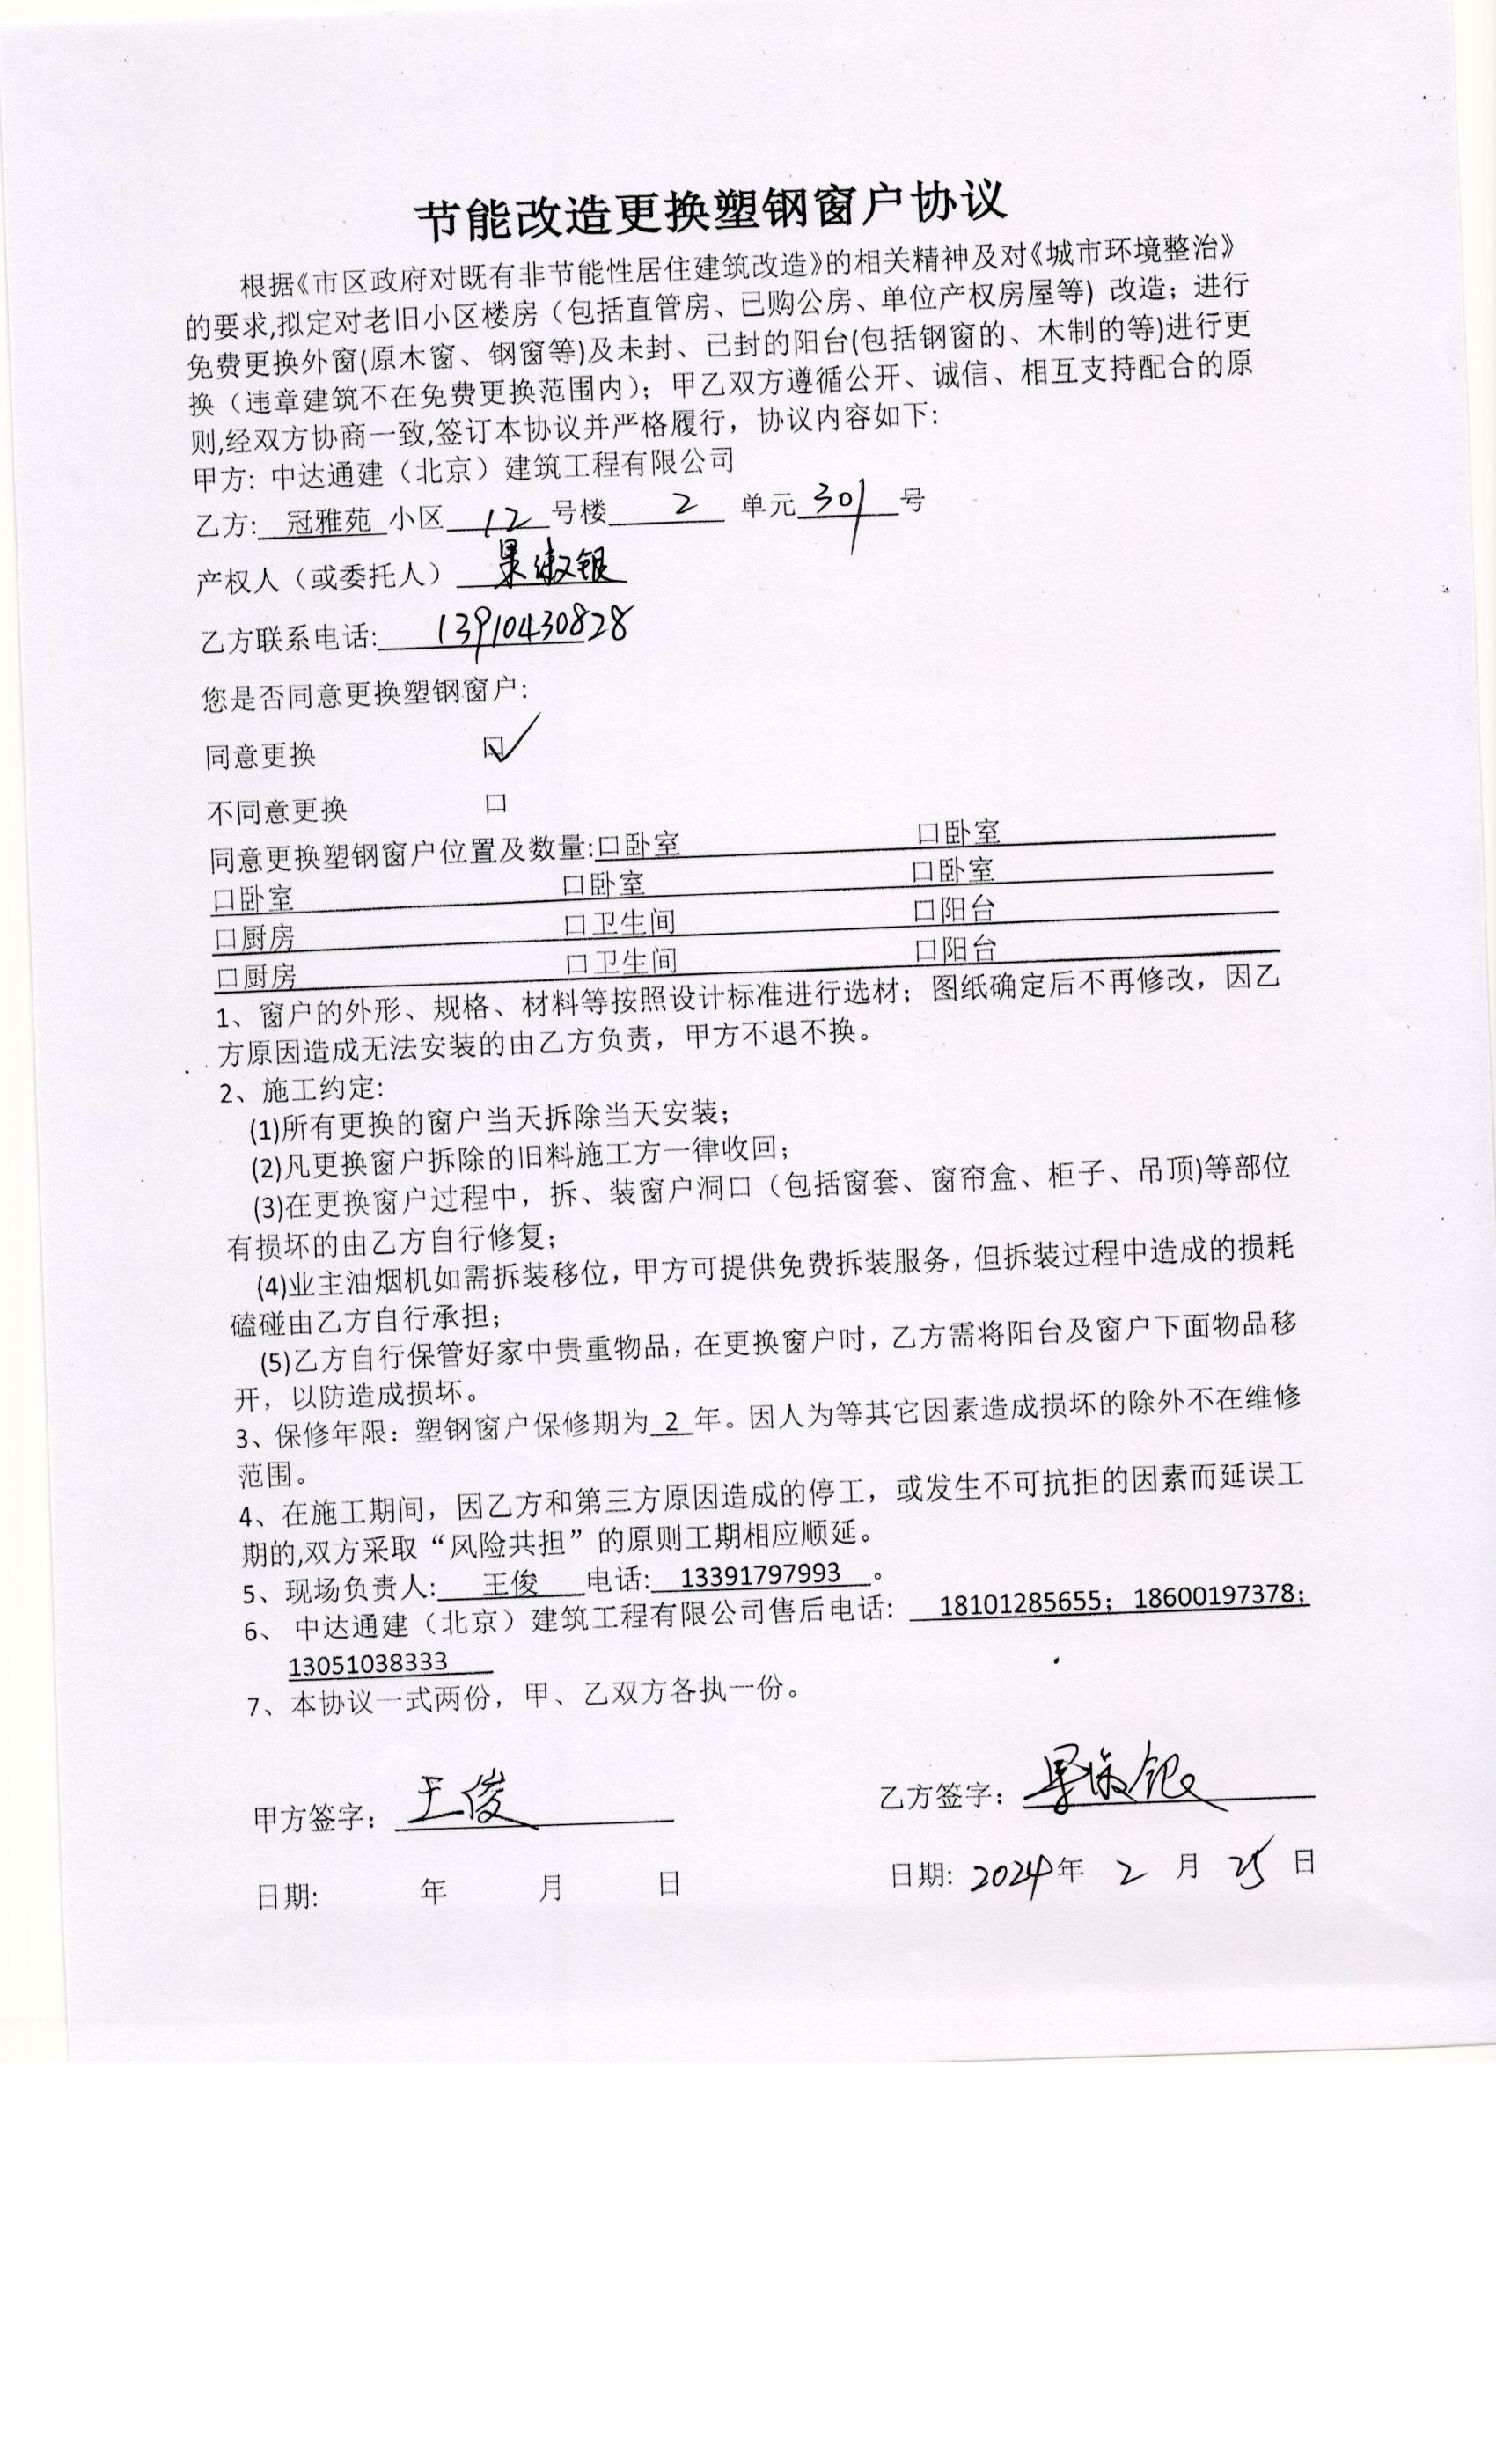 节能改造更换塑钢窗户协议
根据《市区政府对既有非节能性居住建筑改造》的相关精神及对《城市环境整治》
的要求,拟定对老旧小区楼房（包括直管房、已购公房、单位产权房屋等）改造；进行
免费更换外窗(原木窗、钢窗等)及未封、已封的阳台(包括钢窗的、木制的等)进行更
换（违章建筑不在免费更换范围内）；甲乙双方遵循公开、诚信、相互支持配合的原
则,经双方协商一致,签订本协议并严格履行，协议内容如下:
甲方: 中达通建（北京）建筑工程有限公司
乙方: 冠雅苑 小区 12 号楼 2 单元 301 号
产权人（或委托人） 果淑银
乙方联系电话: 13910430828
您是否同意更换塑钢窗户:
同意更换 ☑
不同意更换 口
同意更换塑钢窗户位置及数量:口卧室 口卧室
口卧室 口卧室 口卧室
口厨房 口卫生间 口阳台
口厨房 口卫生间 口阳台
1、窗户的外形、规格、材料等按照设计标准进行选材；图纸确定后不再修改，因乙
方原因造成无法安装的由乙方负责，甲方不退不换。
2、施工约定:
(1)所有更换的窗户当天拆除当天安装；
(2)凡更换窗户拆除的旧料施工方一律收回；
(3)在更换窗户过程中，拆、装窗户洞口（包括窗套、窗帘盒、柜子、吊顶)等部位
有损坏的由乙方自行修复；
(4)业主油烟机如需拆装移位，甲方可提供免费拆装服务，但拆装过程中造成的损耗
磕碰由乙方自行承担；
(5)乙方自行保管好家中贵重物品，在更换窗户时，乙方需将阳台及窗户下面物品移
开，以防造成损坏。
3、保修年限：塑钢窗户保修期为 2 年。因人为等其它因素造成损坏的除外不在维修
范围。
4、在施工期间，因乙方和第三方原因造成的停工，或发生不可抗拒的因素而延误工
期的,双方采取“风险共担”的原则工期相应顺延。
5、现场负责人: 王俊 电话: 13391797993 。
6、 中达通建（北京）建筑工程有限公司售后电话: 18101285655；18600197378；
13051038333
7、本协议一式两份，甲、乙双方各执一份。
甲方签字: 王俊 乙方签字: 果淑银
日期: 年 月 日 日期: 2024年 2 月 25 日